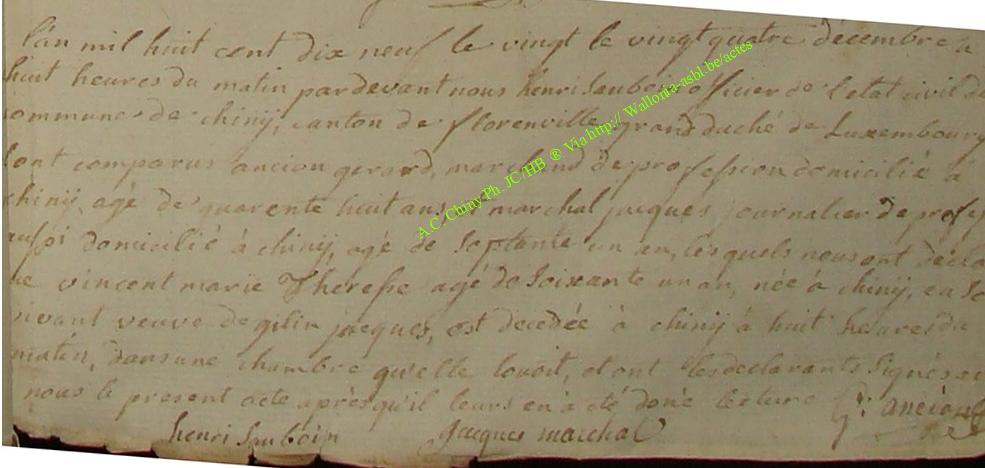 l'an mil huit cent dix neuf le vingt le vingt quatre décembre à
huit heures du matin pardevant nous henri Sauboin officier de l'etat civil de
communes de chinÿ, canton de florenville grand duché de Luxembourg
sont comparus ancion gerard, marchand de profession domicilié à
chinÿ, agé de quarente huit ans, marchal jacques journalier de profes
aussi domicilié à chinÿ, agé de Soptante un an, lesquels nous ont decla
que vincent marie Theresse agé de Soixante un an, née à chinÿ, en So
vivant veuve de gilin jacques, est decedée à chinÿ à huit heures du
matin, dans une chambre qu'elle louoit, et ont les declarants Signés avec
nous le present acte après qu'il leurs en à été doné lecture G. ancion
henri Sauboin jacques marchal
A.C. Chiny Ph. JC /HB ® Via http:// Wallonia-asbl.be/actes